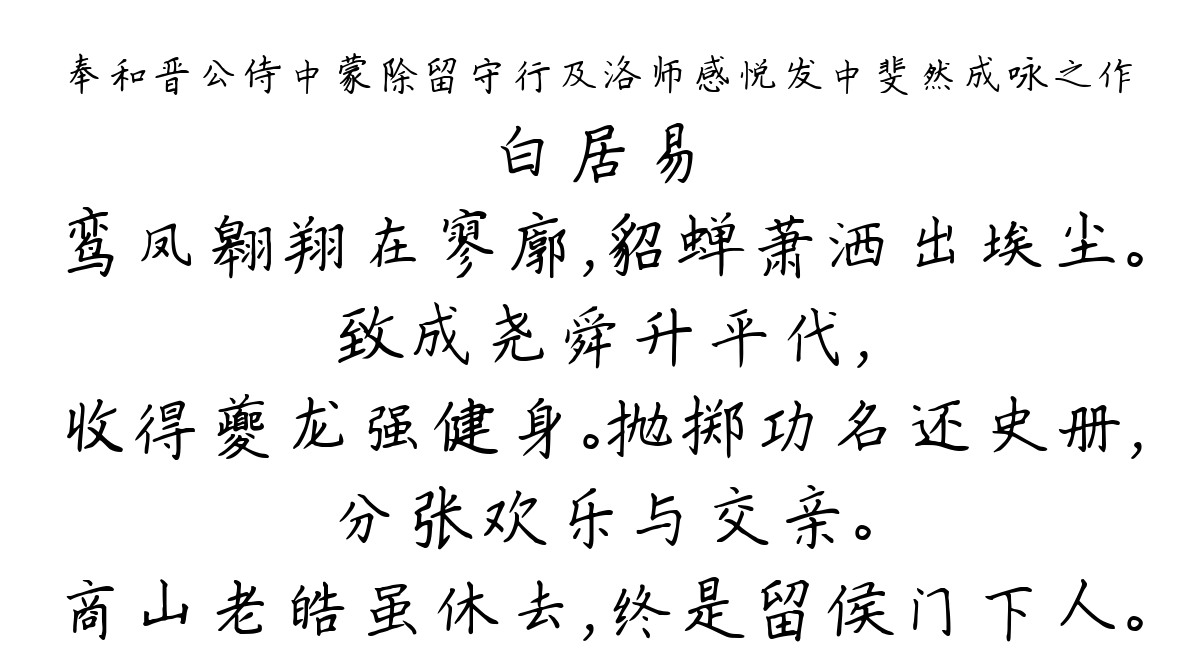 奉和晋公侍中蒙除留守行及洛师感悦发中斐然成咏之作
白居易
鸾凤翱翔在寥廓,貂蝉萧洒出埃尘。
致成尧舜升平代,
收得夔龙强健身。抛掷功名还史册,
分张欢乐与交亲。
商山老皓虽休去,终是留侯门下人。